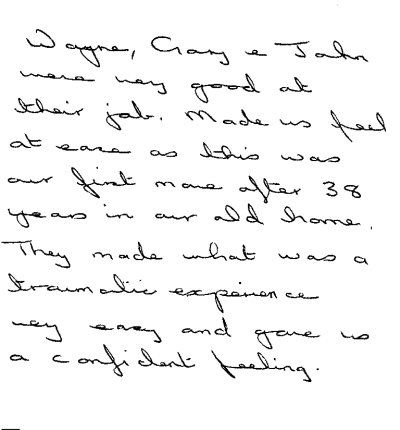 Wayne, Gary & John
were very good at
their job. Made us feel
at ease as this was
our first move after 38
years in our old home.
They made what was a
traumatic experience
very easy and gave us
a confident feeling.